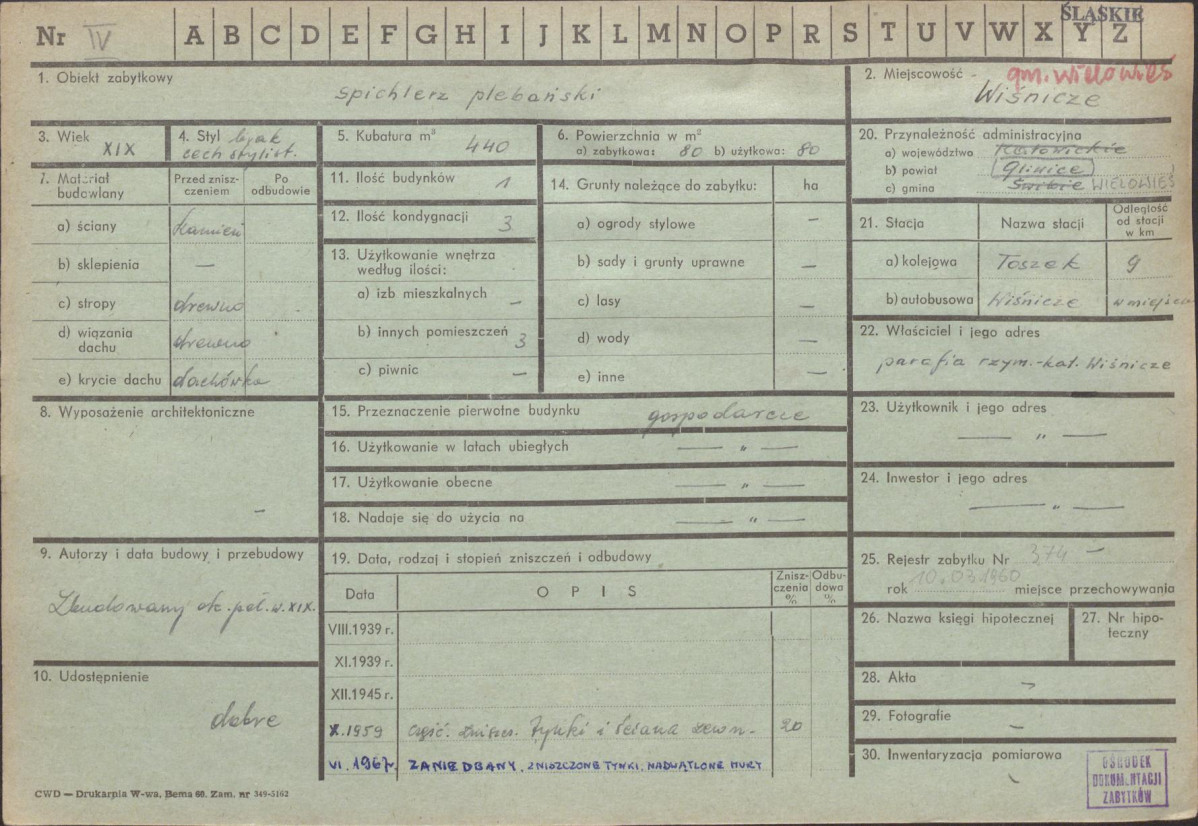 ŚLĄSKIE
Nr IV A B C D E F G H I J K L M N O P R S T U V W X Y Z
1. Obiekt zabytkowy
spichlerz plebański
2. Miejscowość - gm. Wielowieś
Wiśnicze
3. Wiek XIX
4. Styl brak
cech stylist.
5. Kubatura m³ 440
6. Powierzchnia w m²
a) zabytkowa: 80 b) użytkowa: 80
20. Przynależność administracyjna
a) województwo Katowickie
b) powiat Gliwice
c) gmina Świbie WIELOWIEŚ
7. Materiał budowlany
Przed znisz-
czeniem
Po
odbudowie
a) ściany kamień
b) sklepienia —
c) stropy drewno
d) wiązania
dachu drewno
e) krycie dachu dachówka
11. Ilość budynków 1
12. Ilość kondygnacji 3
13. Użytkowanie wnętrza
według ilości:
a) izb mieszkalnych —
b) innych pomieszczeń 3
c) piwnic —
14. Grunty należące do zabytku: ha
a) ogrody stylowe —
b) sady i grunty uprawne —
c) lasy —
d) wody —
e) inne —
21. Stacja Nazwa stacji Odległość
od stacji
w km
a) kolejowa Toszek 9
b) autobusowa Wiśnicze w miejscu
22. Właściciel i jego adres
parafia rzym.-kat. Wiśnicze
8. Wyposażenie architektoniczne
—
15. Przeznaczenie pierwotne budynku gospodarcze
16. Użytkowanie w latach ubiegłych — „ —
17. Użytkowanie obecne — „ —
18. Nadaje się do użycia na — „ —
23. Użytkownik i jego adres
— „ —
24. Inwestor i jego adres
— „ —
9. Autorzy i data budowy i przebudowy
Zbudowany ok. poł. w. XIX.
10. Udostępnienie
dobre
19. Data, rodzaj i stopień zniszczeń i odbudowy
Data OPIS Znisz-
czenia
%
Odbu-
dowa
%
VIII.1939 r.
XI.1939 r.
XII.1945 r.
X.1959 część. zniszcz. tynki i ściana zewn. 20
VI.1967r. ZANIEDBANY, ZNISZCZONE TYNKI, NADWĄTLONE MURY
25. Rejestr zabytku Nr 374 —
rok 10.03.1960 miejsce przechowywania
26. Nazwa księgi hipotecznej
27. Nr hipo-
teczny
28. Akta —
29. Fotografie —
30. Inwentaryzacja pomiarowa
OŚRODEK
DOKUMENTACJI
ZABYTKÓW
CWD — Drukarnia W-wa, Bema 60. Zam. nr 349-5162